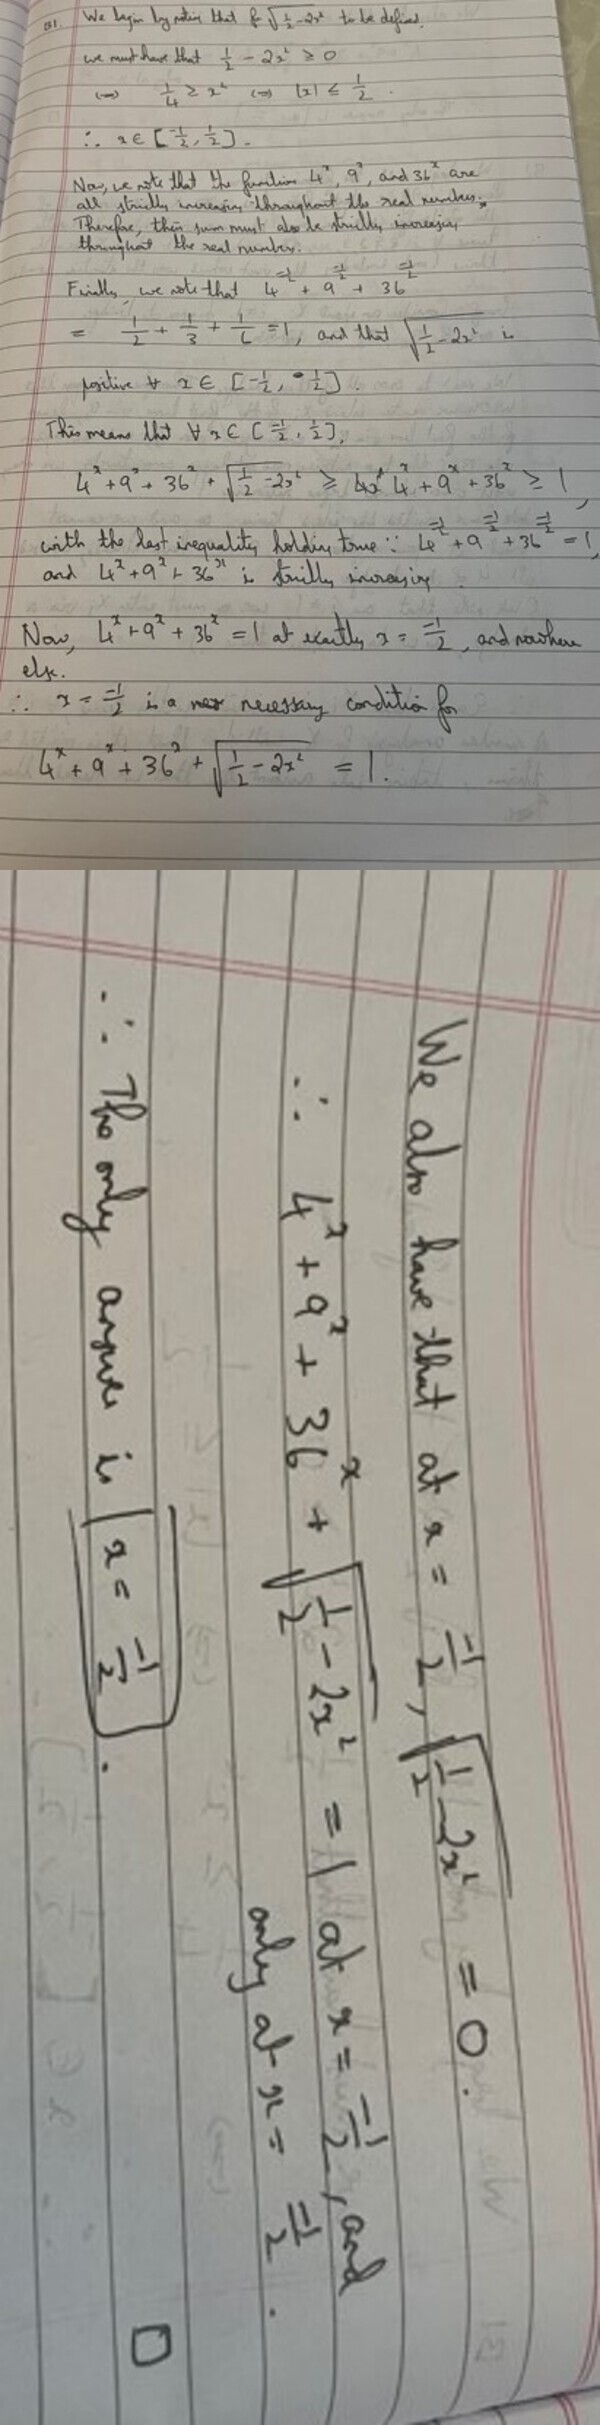 Q1. We begin by noting that for √(1/2 - 2x²) to be defined,
we must have that 1/2 - 2x² ≥ 0
⟺ 1/4 ≥ x² ⟺ |x| ≤ 1/2.
∴ x ∈ [-1/2, 1/2].
Now, we note that the functions 4^x, 9^x, and 36^x are
all strictly increasing throughout the real numbers.
Therefore, their sum must also be strictly increasing
throughout the real numbers.
Finally, we note that 4^(-1/2) + 9^(-1/2) + 36^(-1/2)
= 1/2 + 1/3 + 1/6 = 1, and that √(1/2 - 2x²) is
positive ∀ x ∈ [-1/2, 1/2].
This means that ∀ x ∈ [-1/2, 1/2],
4^x + 9^x + 36^x + √(1/2 - 2x²) ≥ 4^x + 9^x + 36^x ≥ 1,
with the last inequality holding true ∵ 4^(-1/2) + 9^(-1/2) + 36^(-1/2) = 1,
and 4^x + 9^x + 36^x is strictly increasing.
Now, 4^x + 9^x + 36^x = 1 at exactly x = -1/2, and nowhere
else.
∴ x = -1/2 is a necessary condition for
4^x + 9^x + 36^x + √(1/2 - 2x²) = 1.
We also have that at x = -1/2, √(1/2 - 2x²) = 0.
∴ 4^x + 9^x + 36^x + √(1/2 - 2x²) = 1 at x = -1/2, and
only at x = -1/2.
∴ The only answer is x = -1/2.
□